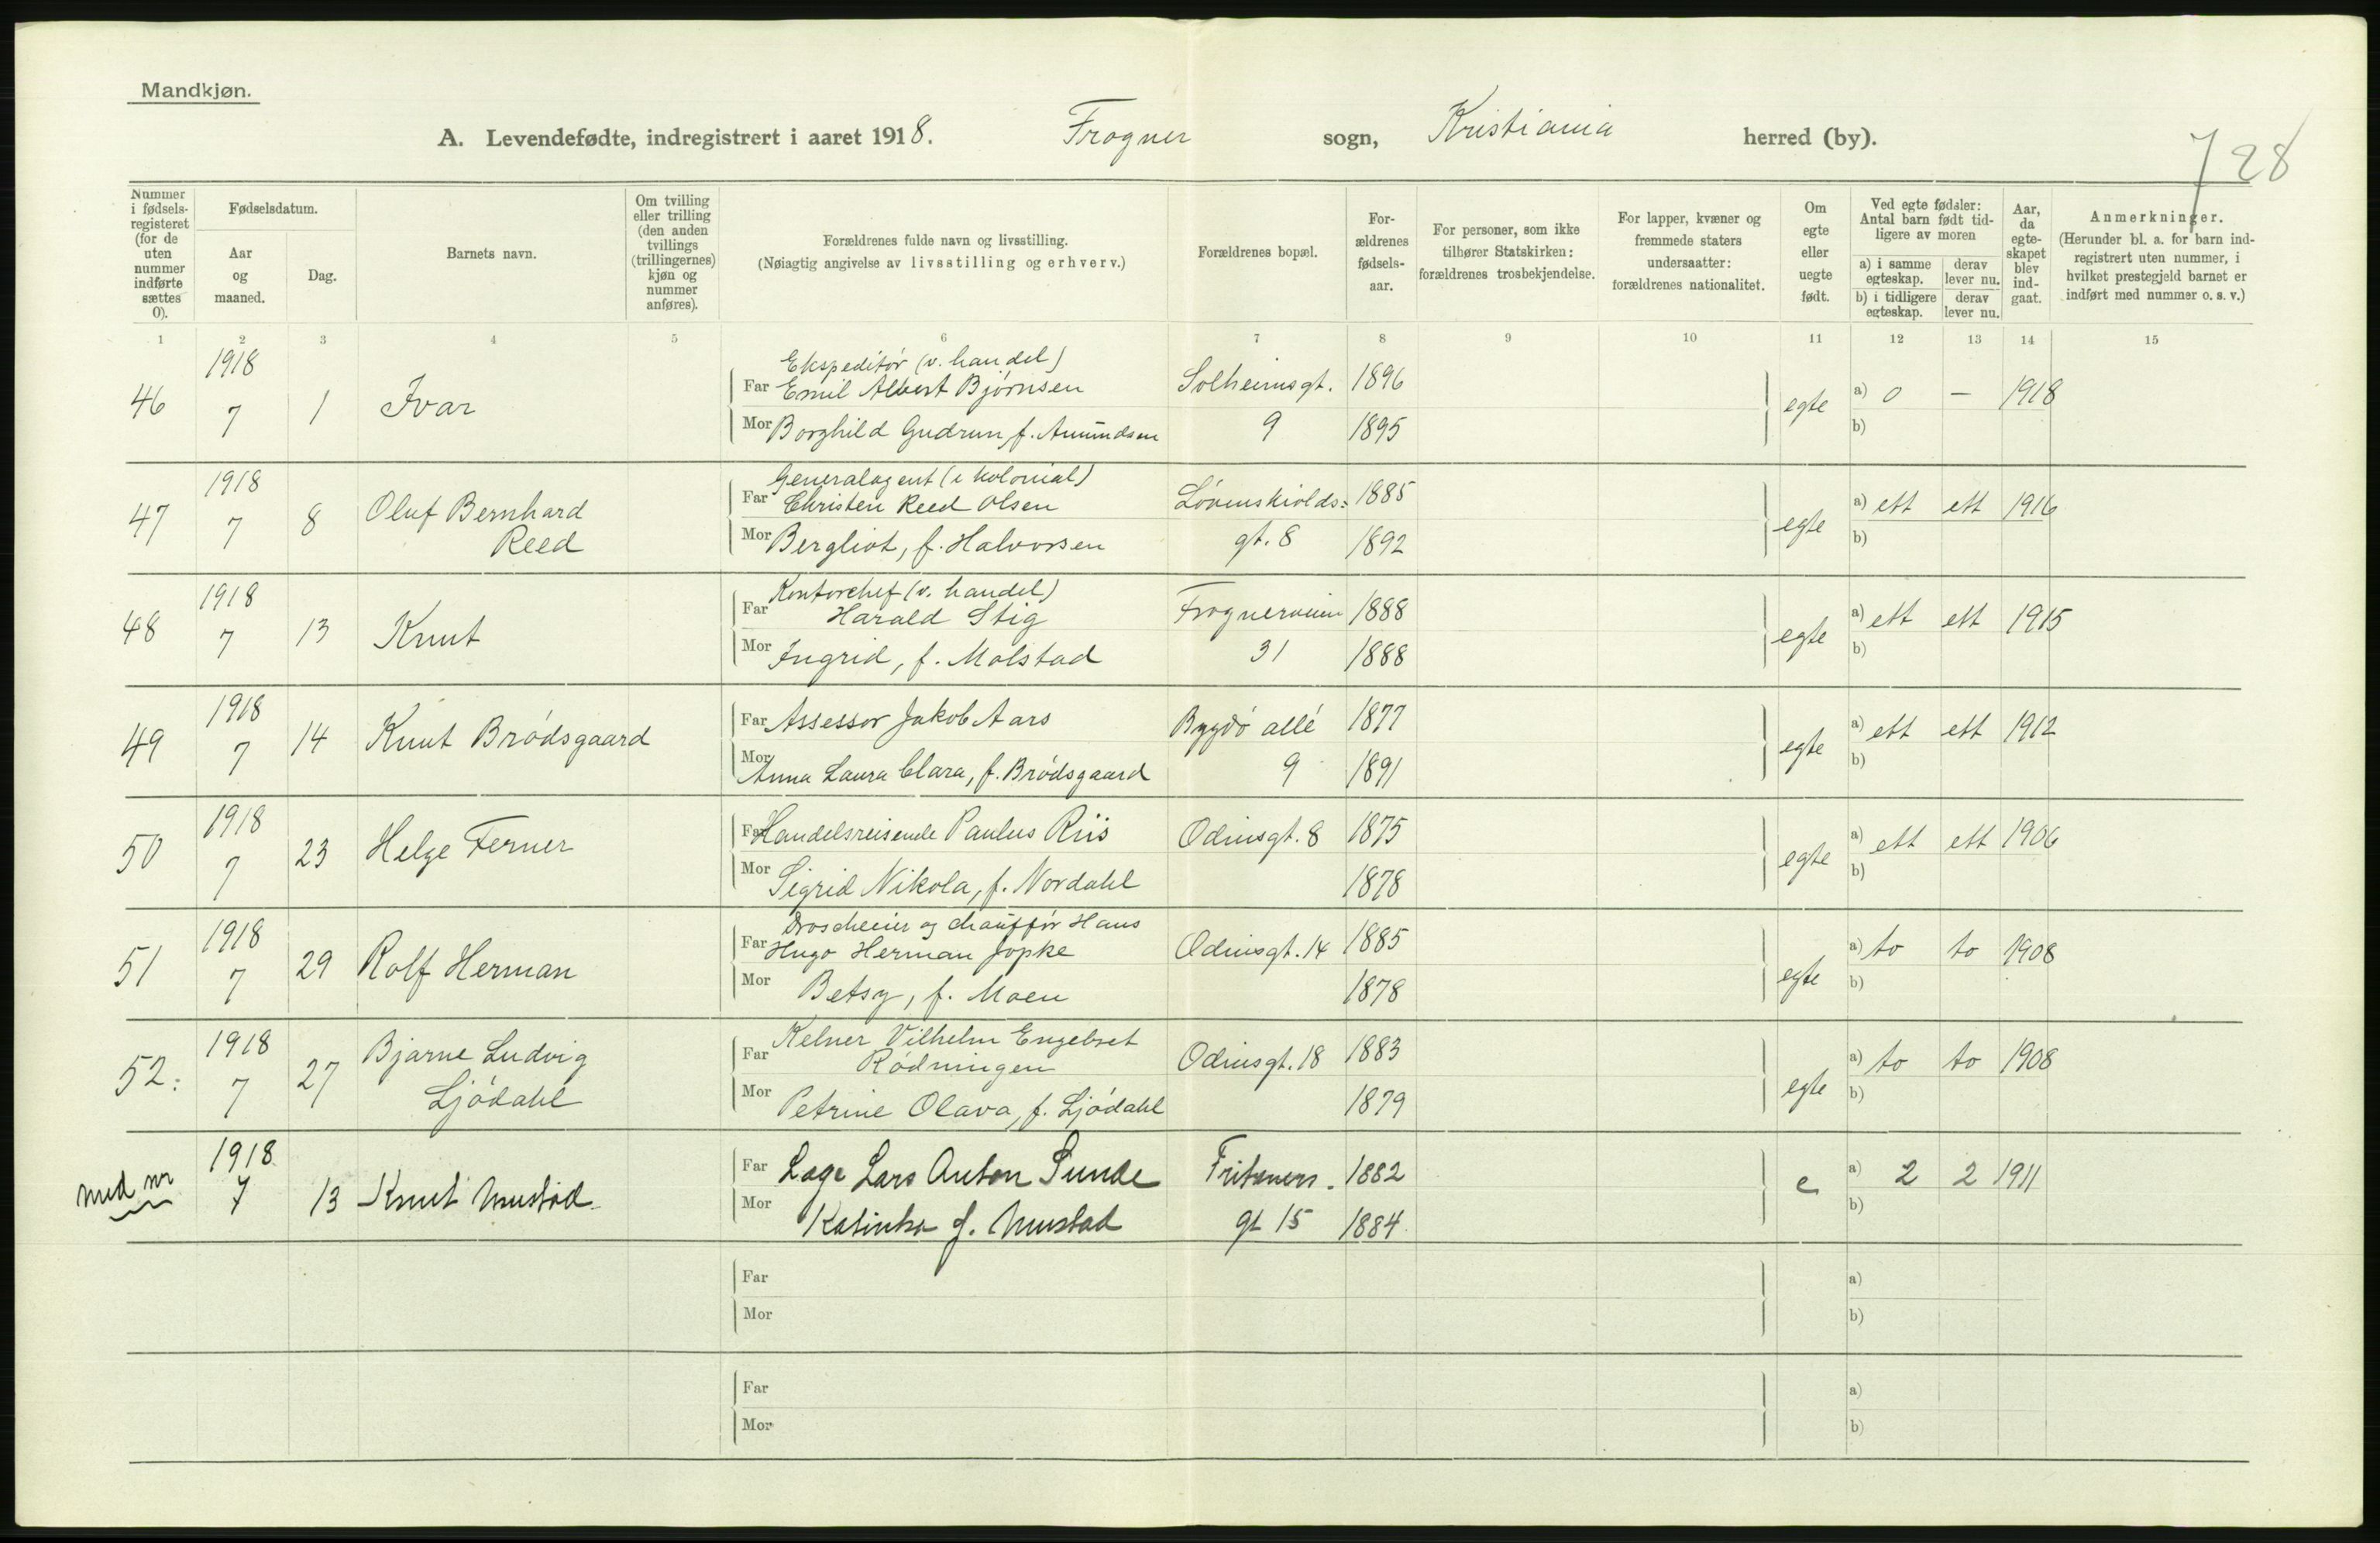 Mandkjøn.
A. Levendefødte, indregistrert i aaret 1918. Frogner sogn, Kristiania herred (by).
728
Nummer i fødsels-registeret (for de uten nummer indførte sættes 0).
Fødselsdatum.
Aar og maaned.
Dag.
Barnets navn.
Om tvilling eller trilling (den anden tvillings (trillingernes) kjøn og nummer anføres).
Forældrenes fulde navn og livsstilling.
(Nøiagtig angivelse av livsstilling og erhverv.)
Forældrenes bopæl.
For-ældrenes fødsels-aar.
For personer, som ikke tilhører Statskirken: forældrenes trosbekjendelse.
For lapper, kvæner og fremmede staters undersaatter: forældrenes nationalitet.
Om egte eller uegte født.
Ved egte fødsler: Antal barn født tid-ligere av moren
a) i samme egteskap.
derav lever nu.
b) i tidligere egteskap.
derav lever nu.
Aar, da egte-skapet blev ind-gaat.
Anmerkninger.
(Herunder bl. a. for barn ind-registrert uten nummer, i hvilket prestegjeld barnet er indført med nummer o. s. v.)
1 2 3 4 5 6 7 8 9 10 11 12 13 14 15
1918 Ekspeditør (v. handel)
46 7 1 Ivar Far Emil Albert Bjørnsen Solheimsgt. 1896 egte a) 0 — 1918
Mor Borghild Gudrun, f. Amundsen 9 1895 b)
1918 Generalagent (i kolonial)
47 7 8 Oluf Bernhard Far Christen Reed Olsen Løvenskiolds= 1885 egte a) ett ett 1916
Reed Mor Bergliot, f. Halvorsen gt. 8 1892 b)
1918 Kontorchef (v. handel)
48 7 13 Knut Far Harald Stig Frognerveien 1888 egte a) ett ett 1915
Mor Ingrid, f. Molstad 31 1888 b)
1918
49 7 14 Knut Brødsgaard Far Assessor Jakob Aars Bygdø allé 1877 egte a) ett ett 1912
Mor Anna Laura Clara, f. Brødsgaard 9 1891 b)
1918
50 7 23 Helge Ferner Far Handelsreisende Paulus Riis Odinsgt. 8 1875 egte a) ett ett 1906
Mor Sigrid Nikola, f. Nordahl 1878 b)
1918 Droscheeier og chauffør Hans
51 7 29 Rolf Herman Far Hugo Herman Jopke Odinsgt. 14 1885 egte a) to to 1908
Mor Betsy, f. Moen 1878 b)
1918 Kelner Vilhelm Engebret
52: 7 27 Bjarne Ludvig Far Rødningen Odinsgt. 18 1883 egte a) to to 1908
Ljødahl Mor Petrine Olava, f. Ljødahl 1879 b)
1918
med nr 7 13 Knut Mustad Far Læge Lars Anton Sunde Fritzners. 1882 e a) 2 2 1911
Mor Katinka f. Mustad gt 15 1884 b)
Far a)
Mor b)
Far a)
Mor b)